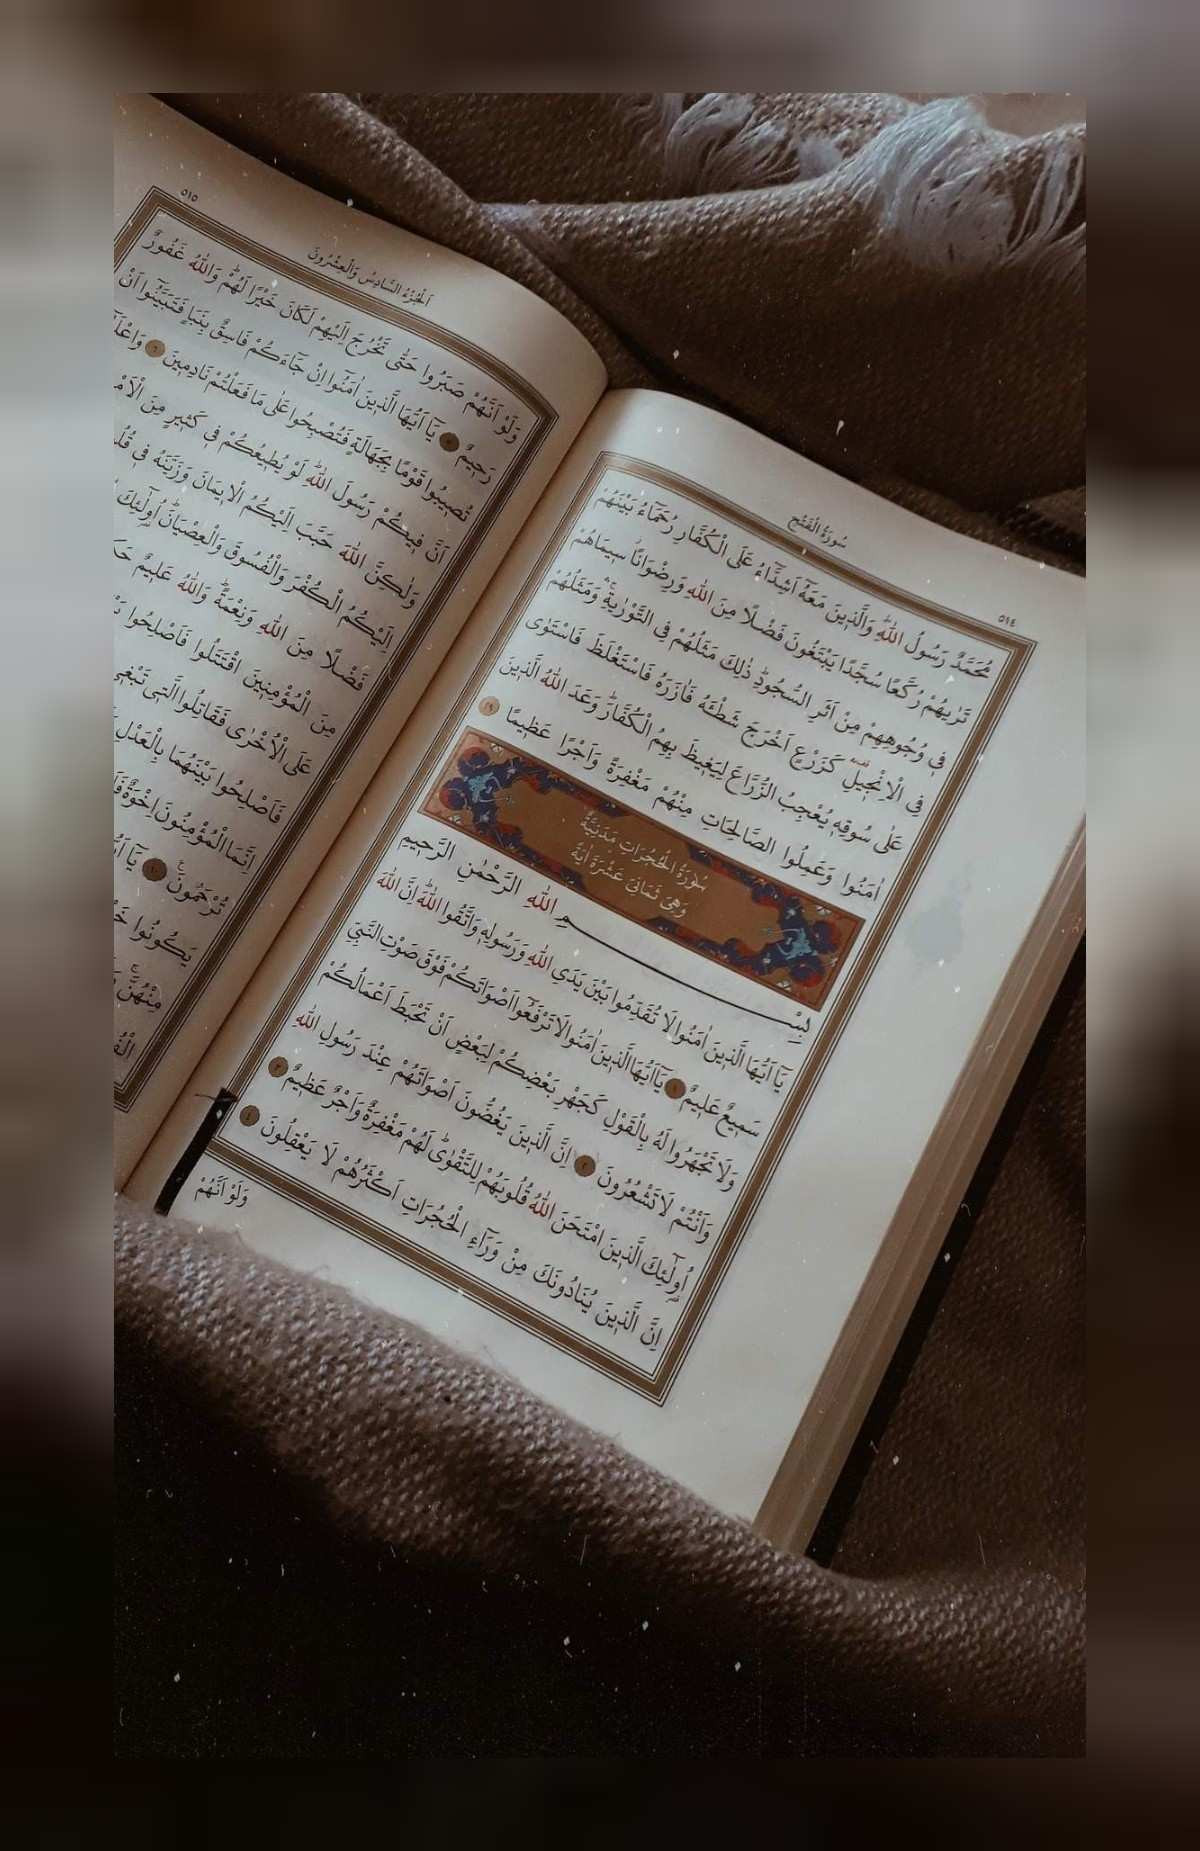 سُورَةُ الْفَتْحِ
٥١٤
مُحَمَّدٌ رَسُولُ اللّٰهِۜ وَالَّذ۪ينَ مَعَهُٓ اَشِدَّٓاءُ عَلَى الْكُفَّارِ رُحَمَٓاءُ بَيْنَهُمْ
تَرٰيهُمْ رُكَّعًا سُجَّدًا يَبْتَغُونَ فَضْلًا مِنَ اللّٰهِ وَرِضْوَانًاۘ س۪يمَاهُمْ
ف۪ي وُجُوهِهِمْ مِنْ اَثَرِ السُّجُودِۜ ذٰلِكَ مَثَلُهُمْ فِي التَّوْرٰيةِۚ وَمَثَلُهُمْ
فِي الْاِنْج۪يلِ۠ كَزَرْعٍ اَخْرَجَ شَطْـَٔهُ فَاٰزَرَهُ فَاسْتَغْلَظَ فَاسْتَوٰى
عَلٰى سُوقِه۪ يُعْجِبُ الزُّرَّاعَ لِيَغ۪يظَ بِهِمُ الْكُفَّارَۜ وَعَدَ اللّٰهُ الَّذ۪ينَ
اٰمَنُوا وَعَمِلُوا الصَّالِحَاتِ مِنْهُمْ مَغْفِرَةً وَاَجْرًا عَظ۪يمًا ١٩
سُورَةُ الْحُجُرَاتِ مَدَنِيَّةٌ
وَهِيَ ثَمَانِيَ عَشْرَةَ اٰيَةً
بِسْمِ اللّٰهِ الرَّحْمٰنِ الرَّح۪يمِ
يَٓا اَيُّهَا الَّذ۪ينَ اٰمَنُوا لَا تُقَدِّمُوا بَيْنَ يَدَيِ اللّٰهِ وَرَسُولِه۪ وَاتَّقُوا اللّٰهَۜ اِنَّ اللّٰهَ
سَم۪يعٌ عَل۪يمٌ ١ يَٓا اَيُّهَا الَّذ۪ينَ اٰمَنُوا لَا تَرْفَعُٓوا اَصْوَاتَكُمْ فَوْقَ صَوْتِ النَّبِيِّ
وَلَا تَجْهَرُوا لَهُ بِالْقَوْلِ كَجَهْرِ بَعْضِكُمْ لِبَعْضٍ اَنْ تَحْبَطَ اَعْمَالُكُمْ
وَاَنْتُمْ لَا تَشْعُرُونَ ٢ اِنَّ الَّذ۪ينَ يَغُضُّونَ اَصْوَاتَهُمْ عِنْدَ رَسُولِ اللّٰهِ
اُو۬لٰٓئِكَ الَّذ۪ينَ امْتَحَنَ اللّٰهُ قُلُوبَهُمْ لِلتَّقْوٰىۜ لَهُمْ مَغْفِرَةٌ وَاَجْرٌ عَظ۪يمٌ ٣
اِنَّ الَّذ۪ينَ يُنَادُونَكَ مِنْ وَرَٓاءِ الْحُجُرَاتِ اَكْثَرُهُمْ لَا يَعْقِلُونَ ٤
وَلَوْ اَنَّهُمْ
اَلْجُزْءُ السَّادِسُ وَالْعِشْرُونَ
٥١٥
وَلَوْ اَنَّهُمْ صَبَرُوا حَتّٰى تَخْرُجَ اِلَيْهِمْ لَكَانَ خَيْرًا لَهُمْۜ وَاللّٰهُ غَفُورٌ
رَح۪يمٌ ٥ يَٓا اَيُّهَا الَّذ۪ينَ اٰمَنُٓوا اِنْ جَٓاءَكُمْ فَاسِقٌ بِنَبَأٍ فَتَبَيَّنُٓوا اَنْ
تُص۪يبُوا قَوْمًا بِجَهَالَةٍ فَتُصْبِحُوا عَلٰى مَا فَعَلْتُمْ نَادِم۪ينَ ٦
اَنَّ ف۪يكُمْ رَسُولَ اللّٰهِۜ لَوْ يُط۪يعُكُمْ ف۪ي كَث۪يرٍ مِنَ
وَلٰكِنَّ اللّٰهَ حَبَّبَ اِلَيْكُمُ الْا۪يمَانَ وَزَيَّنَهُ ف۪ي
اِلَيْكُمُ الْكُفْرَ وَالْفُسُوقَ وَالْعِصْيَانَۜ اُو۬لٰٓئِكَ
فَضْلًا مِنَ اللّٰهِ وَنِعْمَةًۜ وَاللّٰهُ عَل۪يمٌ
مِنَ الْمُؤْمِن۪ينَ اقْتَتَلُوا فَاَصْلِحُوا
عَلَى الْاُخْرٰى فَقَاتِلُوا الَّت۪ي تَبْغ۪ي
فَاَصْلِحُوا بَيْنَهُمَا بِالْعَدْلِ
اِنَّمَا الْمُؤْمِنُونَ اِخْوَةٌ
تُرْحَمُونَ ١٠ يَٓا
يَكُونُوا
مِنْهُنَّۚ